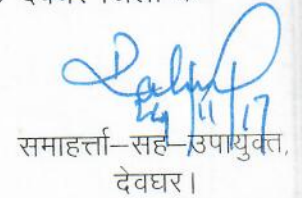 24/11/17
समाहर्त्ता–सह–उपायुक्त,
देवघर।